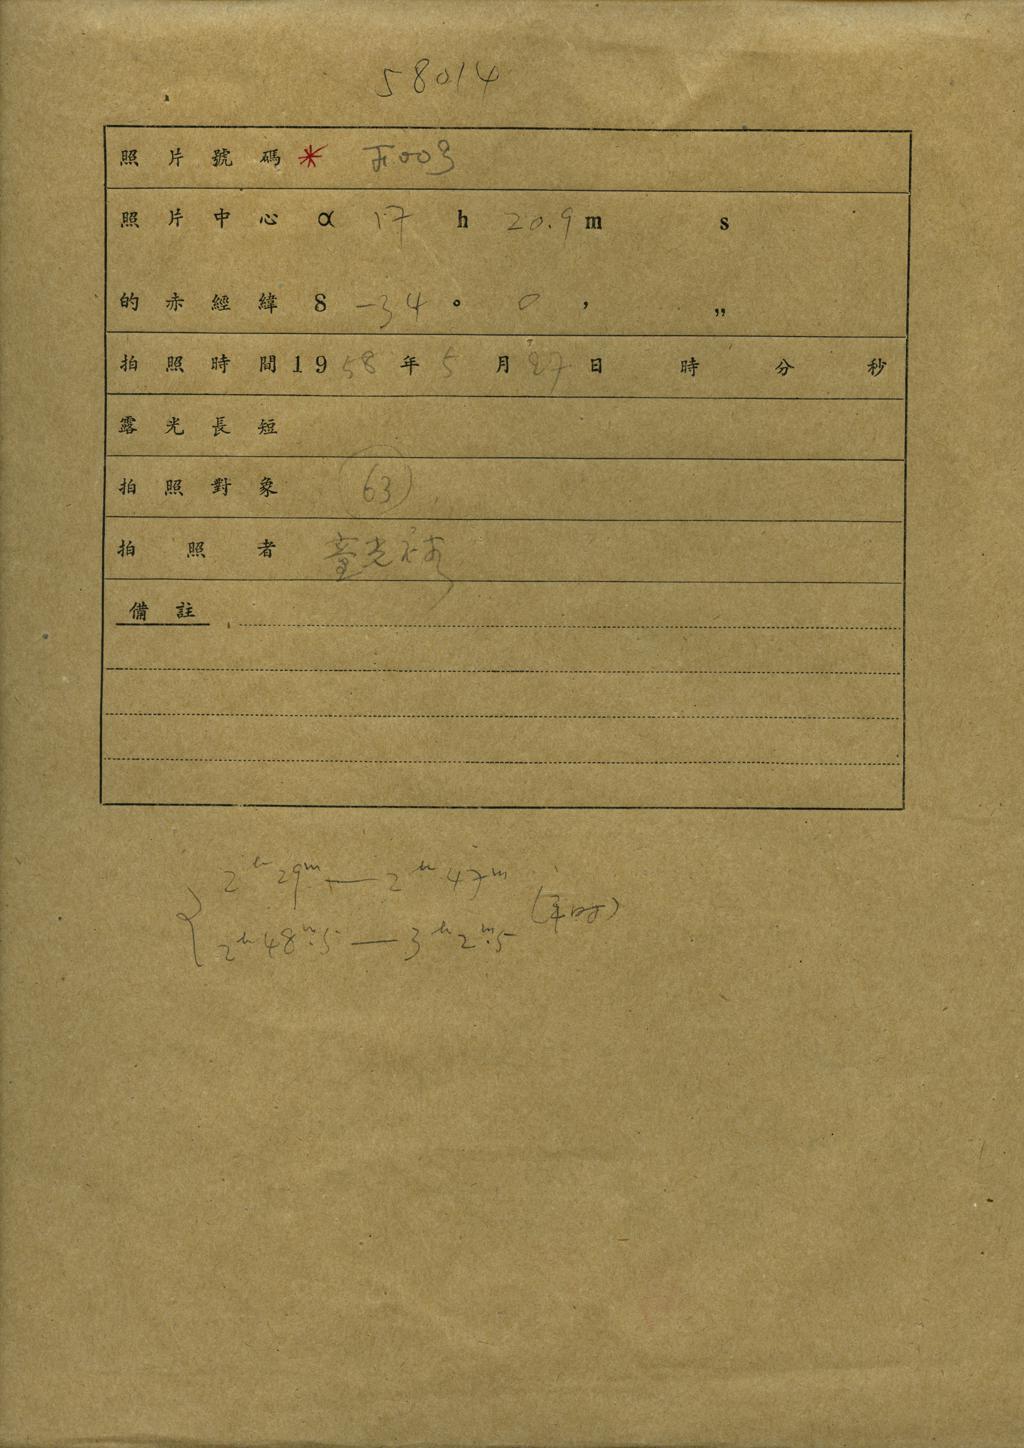 58014
照片號碼 * 干003
照片中心 α 17 h 20.9 m s
的赤經緯 δ -34 ° 0 ′ ″
拍照時間 1958年5月27日 時 分 秒
露光長短
拍照對象 63
拍照者 童光
備註
2h29m — 2h47m
2h48m.5 — 3h2m.5